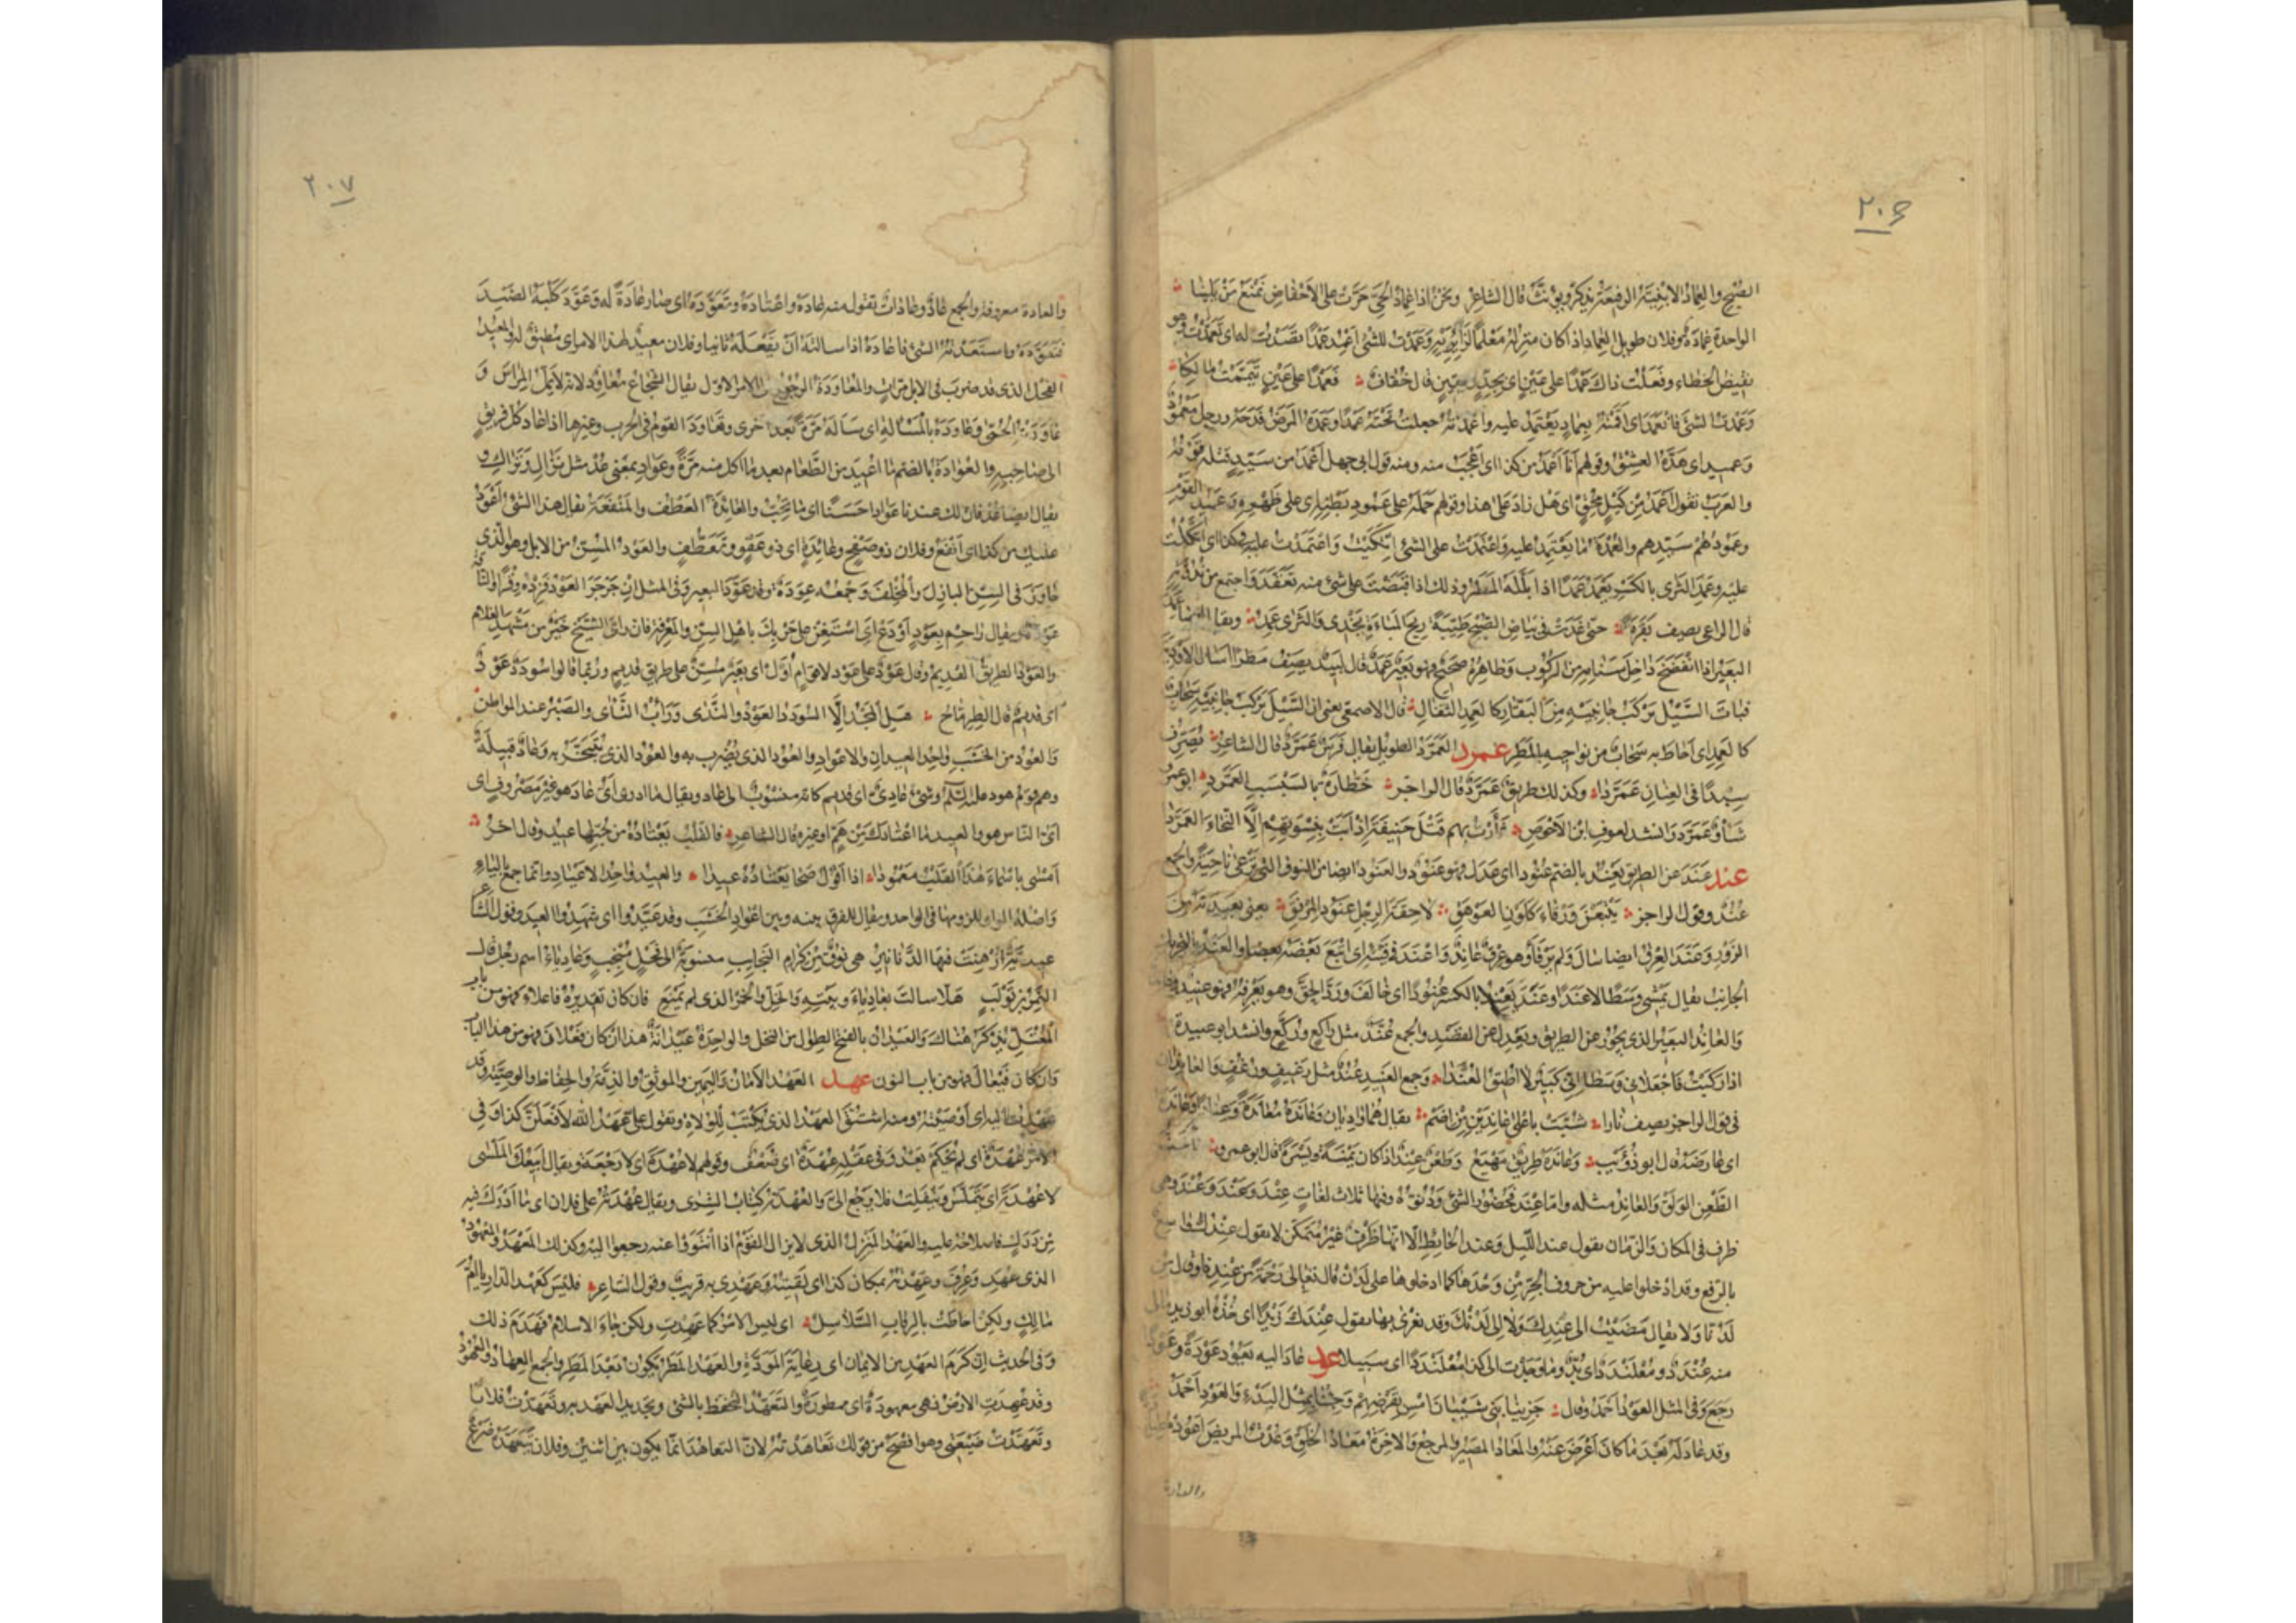 ٢٠۶
الصبح والعماد الابنية الرفيعة يذكر ويونث قال الشاعر ونحن اذا عماد الحى خرت على الاحفاض نمنع من يلينا
الواحدة عمادة وفلان طويل العماد اذا كان منزله معلما لزائريه وعمدت للشئ اعمد عمدا قصدت له اى تعمدت وهو
نقيض الخطاء وفعلت ذاك عمدا على عين اى بجد ويقين قال خفاف فعمدا على عين تيممت مالكا
وعمدت الشئ فانعمد اى اقمته بعماد يعتمد عليه واعمدته جعلت تحته عمدا وعمده المرض فدحه ورجل معمود
وعميد اى هده العشق وقولهم انا اعمد من كذا اى اعجب منه ومنه قول ابى جهل اعمد من سيد قتله قومه
والعرب تقول اعمد من كيل محق اى هل زاد على هذا وقولهم حمله على عمود بطنه اى على ظهره وعميد القوم
وعمودهم سيدهم والعمدة ما يعتمد عليه واعتمدت على الشئ اتكيت واعتمدت عليه فى كذا اى اتكلت
عليه وعمد الثرى بالكسر يعمد عمدا اذا بلله المطر وذلك اذا قبضت على شئ منه تعقد واجتمع من ندوته
قال الراعى يصف بقرة حتى غدت فى بياض الصبح طيبة ريح المباءة تخدى والثرى عمد ويقال ايضا عمد
البعير اذا انفضخ داخل سنامه من الركوب وظاهره صحيح فهو بعير عمد قال لبيد يصف مطرا اسال الاودية
فبات السيل يركب جانبيه من البقار كالعمد الثقال قال الاصمعى يعنى ان السيل يركب جانبيه سحاب
كالعمد اى احاط به سحاب من نواحيه بالمطر عمرد العمرد الطويل يقال فرس عمرد قال الشاعر يصرف
سبدا فى العنان عمردا وكذلك طريق عمرد قال الراجز خطارة بالسبسب العمرد ابو عمرو
شأو عمرد وانشد لعوف ابن الاحوص ثأرت بهم قتلى حنيفة اذ ابت بنسوتهم الا النجاء العمردا
عند عند عن الطريق يعند بالضم عنودا اى عدل فهو عنود والعنود ايضا من النوق التى ترعى ناحية والجمع
عند وقول الراجز يتبعن ورقاء كلون العوهق لاحقة الرجل عنود المرفق يعنى بعيدته من
الزور وعند العرق ايضا سال ولم يرقأ وهو عرق عاند واعند فى قيئه اى اتبع بعضه بعضا والعند بالتحريك
الجانب يقال يمشى وسطا لا عندا وعند يعند بالكسر عنودا اى خالف ورد الحق وهو يعرفه فهو عنيد وعاند
والعاند البعير الذى يجور عن الطريق ويعدل عن القصد والجمع عند مثل راكع وركع وانشد ابو عبيدة
اذا ركبت فاجعلانى وسطا انى كبير لا اطيق العندا وجمع العنيد عند مثل رغيف ورغف والعاندان
فى قول الراجز يصف نارا شبت باعلى عاندين من اضم يقال هما واديان وعانده معاندة وعنادا وعانده
اى عارضه قال ابو ذويب وعانده طريق مهيع وطعن عند اذا كان يمنة ويسرة قال ابو عمرو
الطعن الولق والعاند مثله واما عند فحضور الشئ ودنوه وفيها ثلاث لغات عند وعند وعند وهى
ظرف فى المكان والزمان تقول عند الليل وعند الحائط الا انها ظرف غير متمكن لا تقول عندك واسع
بالرفع وقد ادخلوا عليه من حروف الجر من وحدها كما ادخلوها على لدن قال تعالى رحمة من عندنا وقال من
لدنا ولا يقال مضيت الى عندك ولا الى لدنك وقد يغرى بها يقول عندك زيدا اى خذه ابو زيد مالى
منه عندد ومعلندد اى بد وما وجدت الى كذا معلنددا اى سبيلا عود عاد اليه يعود عودة وعودا
رجع وفى المثل العود احمد وقال جزينا بنى شيبان امس بقرضهم وجئنا بمثل البدء والعود احمد
وقد عاد له بعد ما كان اعرض عنه والمعاد المصير والمرجع والاخرة معاد الخلق وعدت المريض اعوده
والعادة
٢٠٧
والعادة معروفة والجمع عاد وعادات تقول منه عاده واعتاده وتعوده اى صار عادة له وعود كلبه الصيد
فتعوده واستعدته الشئ فاعاده اذا سالته ان يفعله ثانيا وفلان معيد لهذا الامر اى مطيق له والمعيد
الفحل الذى قد ضرب فى الابل مرات والمعاودة الرجوع الى الامر الاول يقال الشجاع معاود لانه لا يمل المراس و
عاودته الحمى وعاوده بالمسالة اى ساله مرة بعد اخرى وتعاود القوم فى الحرب وغيرها اذا عاد كل فريق
الى صاحبه والعوادة بالضم ما اعيد من الطعام بعد ما اكل منه مرة وعواد بمعنى عد مثل نزال وتراك و
يقال ايضا عد فان لك عندنا عوادا حسنا اى ما تحب والعائدة العطف والمنفعة يقال هذا الشئ اعود
عليك من كذا اى انفع وفلان ذو صفح وعائدة اى ذو عفو وتعطف والعود المسن من الابل وهو الذى
جاوز فى السن البازل والمخلف وجمعه عودة وقد عود البعير وفى المثل ان جرجر العود فزده وقرا والناقة
عودة ويقال زاحم بعود او دع اى استعن على حربك باهل السن والمعرفة فان راى الشيخ خير من مشهد الغلام
والعود الطريق القديم وقال عود على عود لاقوام اول اى بعير مسن على طريق قديم وربما قالوا سودد عود
اى قديم قال الطرماح هل المجد الا السودد العود والندى ورأب الثأى والصبر عند المواطن
والعود من الخشب واحد العيدان والاعواد والعود الذى يضرب به والعود الذى يتبخر به وعاد قبيلة
وهم قوم هود عليه السلم وشئ عادى اى قديم كانه منسوب الى عاد ويقال ما ادرى اى عاد هو غير مصروف اى
اى الناس هو والعيد ما اعتادك من هم او غيره قال الشاعر فالقلب يعتاده من حبها عيد وقال اخر
امسى باسماء هذا القلب معمودا اذا اقول صحا يعتاده عيدا والعيد واحد الاعياد وانما جمع بالياء
واصله الواو للزومها فى الواحد ويقال للفرق بينه وبين اعواد الخشب وقد عيدوا اى شهدوا العيد وقول الشاعر
عيدية ارهنت فيها الدنانير هى نوق من كرام النجايب منسوبة الى فحل منجب وعادياء اسم رجل قال
النمر بن تولب هلا سالت بعادياء وبيته والخل والخمر الذى لم يمنع فان كان تقديره فاعلاء فهو من باب
المعتل يذكر هناك والعيدان بالفتح الطوال من النخل والواحدة عيدانة هذا ان كان فعلان فهو من هذا الباب
وان كان فيعال فهو من باب النون عهد العهد الامان واليمين والموثق والذمة والحفاظ والوصية وقد
عهدت اليه اى اوصيته ومنه اشتق العهد الذى يكتب للولاة وتقول على عهد الله لافعلن كذا وفى
الامر عهدة اى لم يحكم بعد وفى عقله عهدة اى ضعف وقولهم لا عهدة اى لا رجعة ويقال ابيعك الملسى
لا عهدة اى يتملس وينفلت فلا يرجع الى والعهدة كتاب الشرى ويقال عهدته على فلان اى ما ادرك فيه
من درك فاصلاحه عليه والعهد المنزل الذى لا يزال القوم اذا انتووا عنه رجعوا اليه وكذلك المعهد والمعهود
الذى عهد وعرف وعهدته بمكان كذا اى لقيته وعهدى به قريب وقول الشاعر فليس كعهد الدار يا ام
مالك ولكن احاطت بالرقاب السلاسل اى ليس الامر كما عهدت ولكن جاء الاسلام فهدم ذلك
وفى الحديث ان كرم العهد من الايمان اى رعاية المودة والعهد المطر يكون بعد المطر والجمع العهاد والعهود
وقد عهدت الارض فهى معهودة اى ممطورة والتعهد التحفظ بالشئ وتجديد العهد به وتعهدت فلانا
وتعهدت ضيعتى وهو افصح من قولك تعاهدته لان التعاهد انما يكون بين اثنين وفلان يتعهده صرع